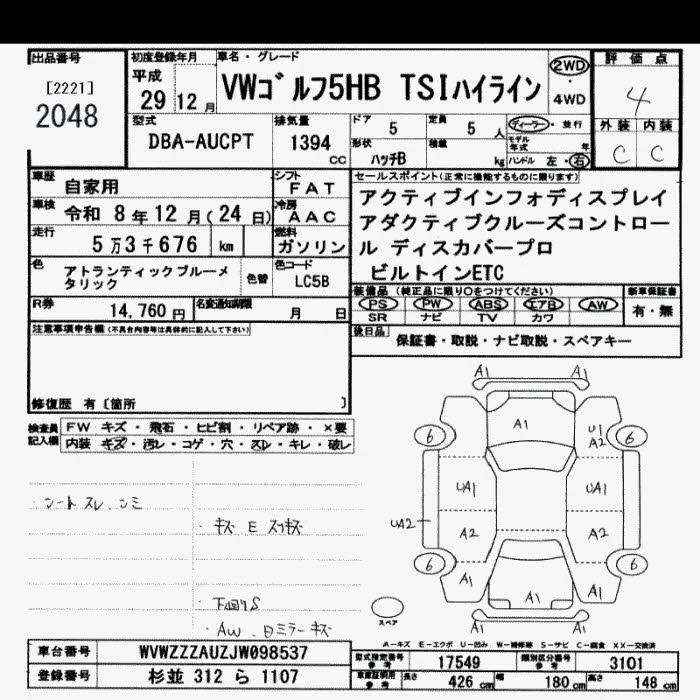 出品番号 初度登録年月 車名・グレード 評価点
[2221] 平成 VWゴルフ5HB TSIハイライン 2WD 4
2048 29 12 月 4WD
型式 排気量 ドア 定員 ディーラー・並行 外装 内装
DBA-AUCPT 1394 cc 5 5 人 モデル年式 年 C C
形状 ハッチB 積載 kg ハンドル 左・右
車歴 自家用 シフト FAT セールスポイント(正常に機能するものに限ります)
車検 令和 8年12月(24日) 冷房 AAC アクティブインフォディスプレイ
走行 5万3千676 km 燃料 ガソリン アダクティブクルーズコントロー
ル ディスカバープロ
色 アトランティックブルーメ 色替 色コード LC5B ビルトインETC
タリック
装備品(純正品に限り○をつけてください) 新車保証書
R券 14,760円 名変通知期限 月 日 PS PW ABS エアB AW 有・無
SR ナビ TV カワ
注意事項申告欄(不具合内容等は具体的に記入して下さい) 後日品 保証書・取説・ナビ取説・スペアキー
修復歴 有〔箇所 〕
検査員 FW キズ・飛石・ヒビ割・リペア跡・×要
記入欄 内装 キズ・汚レ・コゲ・穴・スレ・キレ・破レ
A1 A1
A1
6 U1 6
A2
UA1 UA1
・シートスレ、シミ
・キズ E スリキズ
UA2 A2 A2
6 6
A1 A1 A1
・下回りS
スペア
・AW、日ミラーキズ
A1 A1
A-キズ E-エクボ U-凹み W-補修跡 S-サビ C-腐食 XX-交換済
車台番号 WVWZZZAUZJW098537 型式指定番号 参考 17549 類別区分番号 参考 3101
登録番号 杉並 312 ら 1107 車庫証明用 参考 長さ 426 cm 幅 180 cm 高さ 148 cm